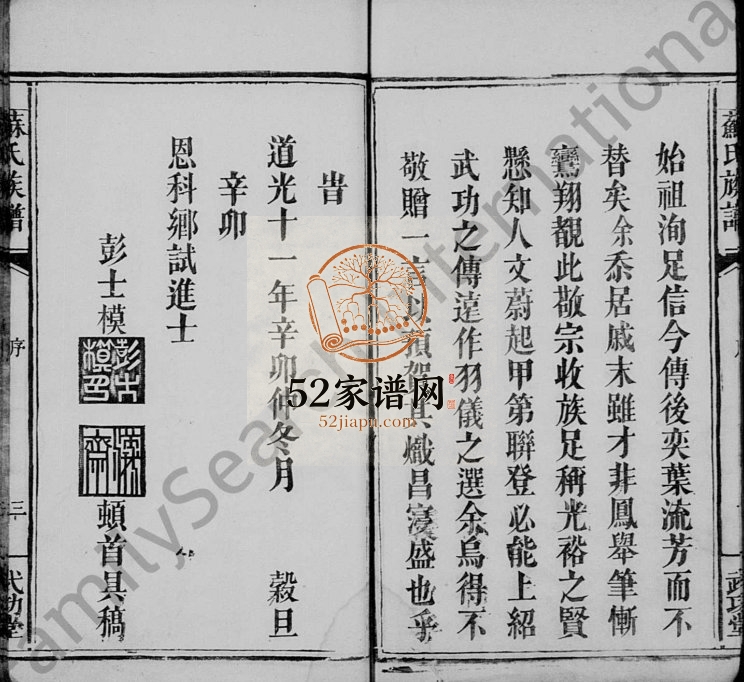 蘇氏族譜
序
武功堂
始祖洵足信今傳後奕葉流芳而不
替矣余忝居戚末雖才非鳳舉筆慚
鸞翔覩此敬宗收族足稱光裕之賢
懸知人文蔚起甲第聯登必能上紹
武功之傳遠作羽儀之選余烏得不
敬贈一言以預賀其熾昌寖盛也乎
旹
道光十一年辛卯仲冬月 穀旦
辛卯
恩科鄉試進士
彭士模 頓首具稿
彭士模印
蘇氏族譜
序
三
武功堂
52家谱网
52jiapu.com
FamilySearch International